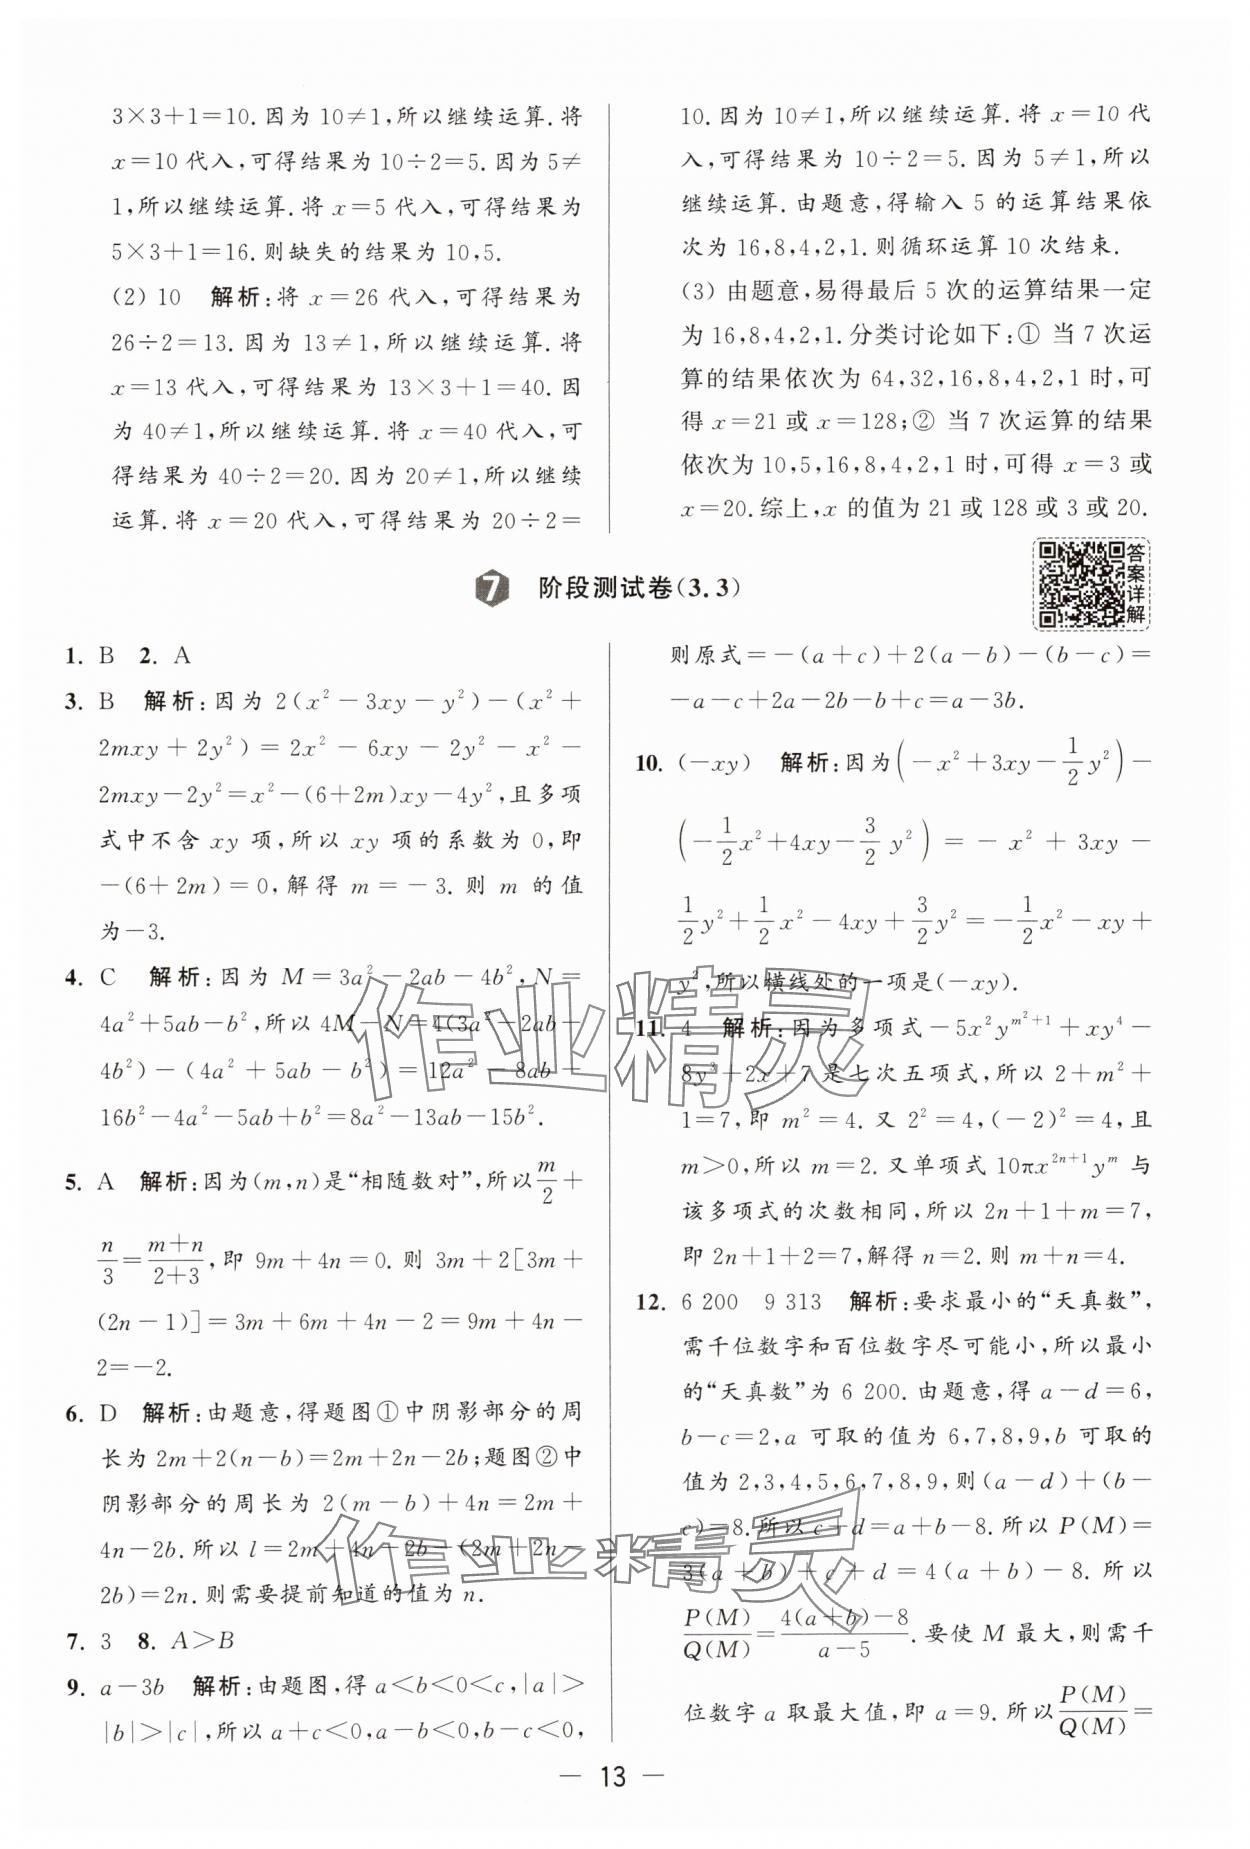 3×3+1=10. 因为 10≠1,所以继续运算. 将
x=10 代入,可得结果为 10÷2=5. 因为 5≠
1,所以继续运算. 将 x=5 代入,可得结果为
5×3+1=16. 则缺失的结果为 10,5.
(2) 10 解析:将 x=26 代入,可得结果为
26÷2=13. 因为 13≠1,所以继续运算. 将
x=13 代入,可得结果为 13×3+1=40. 因
为 40≠1,所以继续运算. 将 x=40 代入,可
得结果为 40÷2=20. 因为 20≠1,所以继续
运算. 将 x=20 代入,可得结果为 20÷2=
10. 因为 10≠1,所以继续运算. 将 x=10 代
入,可得结果为 10÷2=5. 因为 5≠1,所以
继续运算. 由题意,得输入 5 的运算结果依
次为 16,8,4,2,1. 则循环运算 10 次结束.
(3) 由题意,易得最后 5 次的运算结果一定
为 16,8,4,2,1. 分类讨论如下:① 当 7 次运
算的结果依次为 64,32,16,8,4,2,1 时,可
得 x=21 或 x=128;② 当 7 次运算的结果
依次为 10,5,16,8,4,2,1 时,可得 x=3 或
x=20. 综上,x 的值为 21 或 128 或 3 或 20.
7 阶段测试卷(3.3)
答案详解
1. B 2. A
3. B 解析:因为 2(x²－3xy－y²)－(x²+
2mxy+2y²)=2x²－6xy－2y²－x²－
2mxy－2y²=x²－(6+2m)xy－4y²,且多项
式中不含 xy 项,所以 xy 项的系数为 0,即
－(6+2m)=0,解得 m=－3. 则 m 的值
为－3.
4. C 解析:因为 M=3a²－2ab－4b²,N=
4a²+5ab－b²,所以 4M－N=4(3a²－2ab－
4b²)－(4a²+5ab－b²)=12a²－8ab－
16b²－4a²－5ab+b²=8a²－13ab－15b².
5. A 解析:因为(m,n)是“相随数对”,所以 m/2+
n/3=(m+n)/(2+3),即 9m+4n=0. 则 3m+2[3m+
(2n－1)]=3m+6m+4n－2=9m+4n－
2=－2.
6. D 解析:由题意,得题图①中阴影部分的周
长为 2m+2(n－b)=2m+2n－2b;题图②中
阴影部分的周长为 2(m－b)+4n=2m+
4n－2b. 所以 l=2m+4n－2b－(2m+2n－
2b)=2n. 则需要提前知道的值为 n.
7. 3 8. A＞B
9. a－3b 解析:由题图,得 a＜b＜0＜c,|a|＞
|b|＞|c|,所以 a+c＜0,a－b＜0,b－c＜0,
则原式=－(a+c)+2(a－b)－(b－c)=
－a－c+2a－2b－b+c=a－3b.
10. (－xy) 解析:因为(－x²+3xy－1/2y²)－
(－1/2x²+4xy－3/2y²)=－x²+3xy－
1/2y²+1/2x²－4xy+3/2y²=－1/2x²－xy+
y²,所以横线处的一项是(－xy).
11. 4 解析:因为多项式－5x²y^(m²+1)+xy⁴－
8y³+2x+7 是七次五项式,所以 2+m²+
1=7,即 m²=4. 又 2²=4,(－2)²=4,且
m＞0,所以 m=2. 又单项式 10πx^(2n+1)y^m 与
该多项式的次数相同,所以 2n+1+m=7,
即 2n+1+2=7,解得 n=2. 则 m+n=4.
12. 6 200 9 313 解析:要求最小的“天真数”,
需千位数字和百位数字尽可能小,所以最小
的“天真数”为 6 200. 由题意,得 a－d=6,
b－c=2,a 可取的值为 6,7,8,9,b 可取的
值为 2,3,4,5,6,7,8,9,则(a－d)+(b－
c)=8. 所以 c+d=a+b－8. 所以 P(M)=
3(a+b)+c+d=4(a+b)－8. 所以
P(M)/Q(M)=(4(a+b)－8)/(a－5). 要使 M 最大,则需千
位数字 a 取最大值,即 a=9. 所以 P(M)/Q(M)=
作业精灵
作业精灵
— 13 —